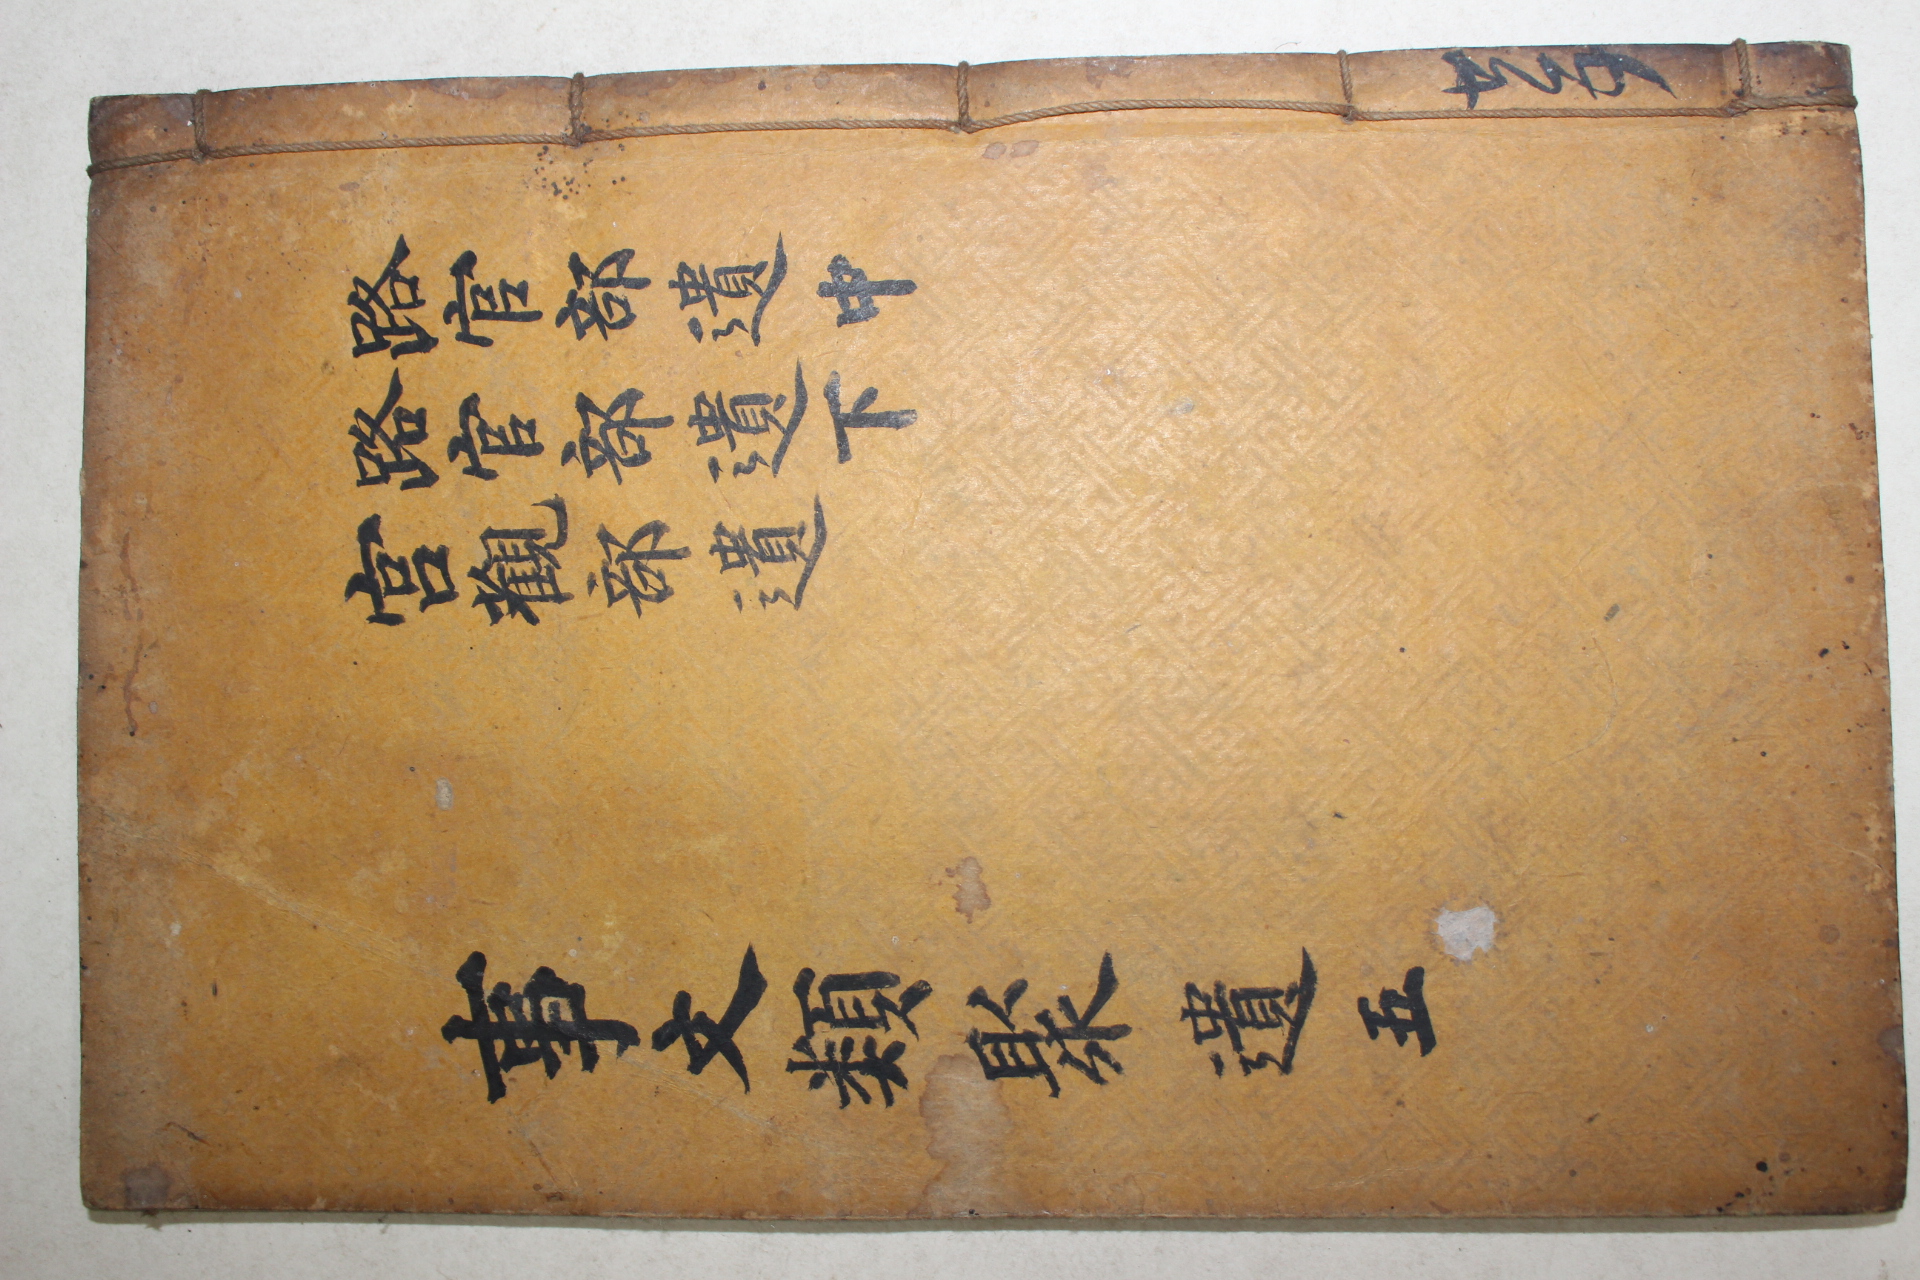 路官部遺中
路官部遺下
宮觀部遺
事文類聚 遺 五